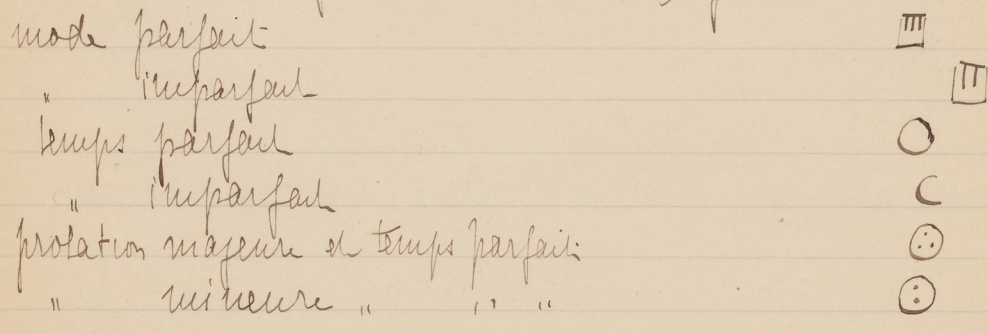 mode parfait
" imparfait
temps parfait
" imparfait
prolation majeure et temps parfait
" mineure " " "